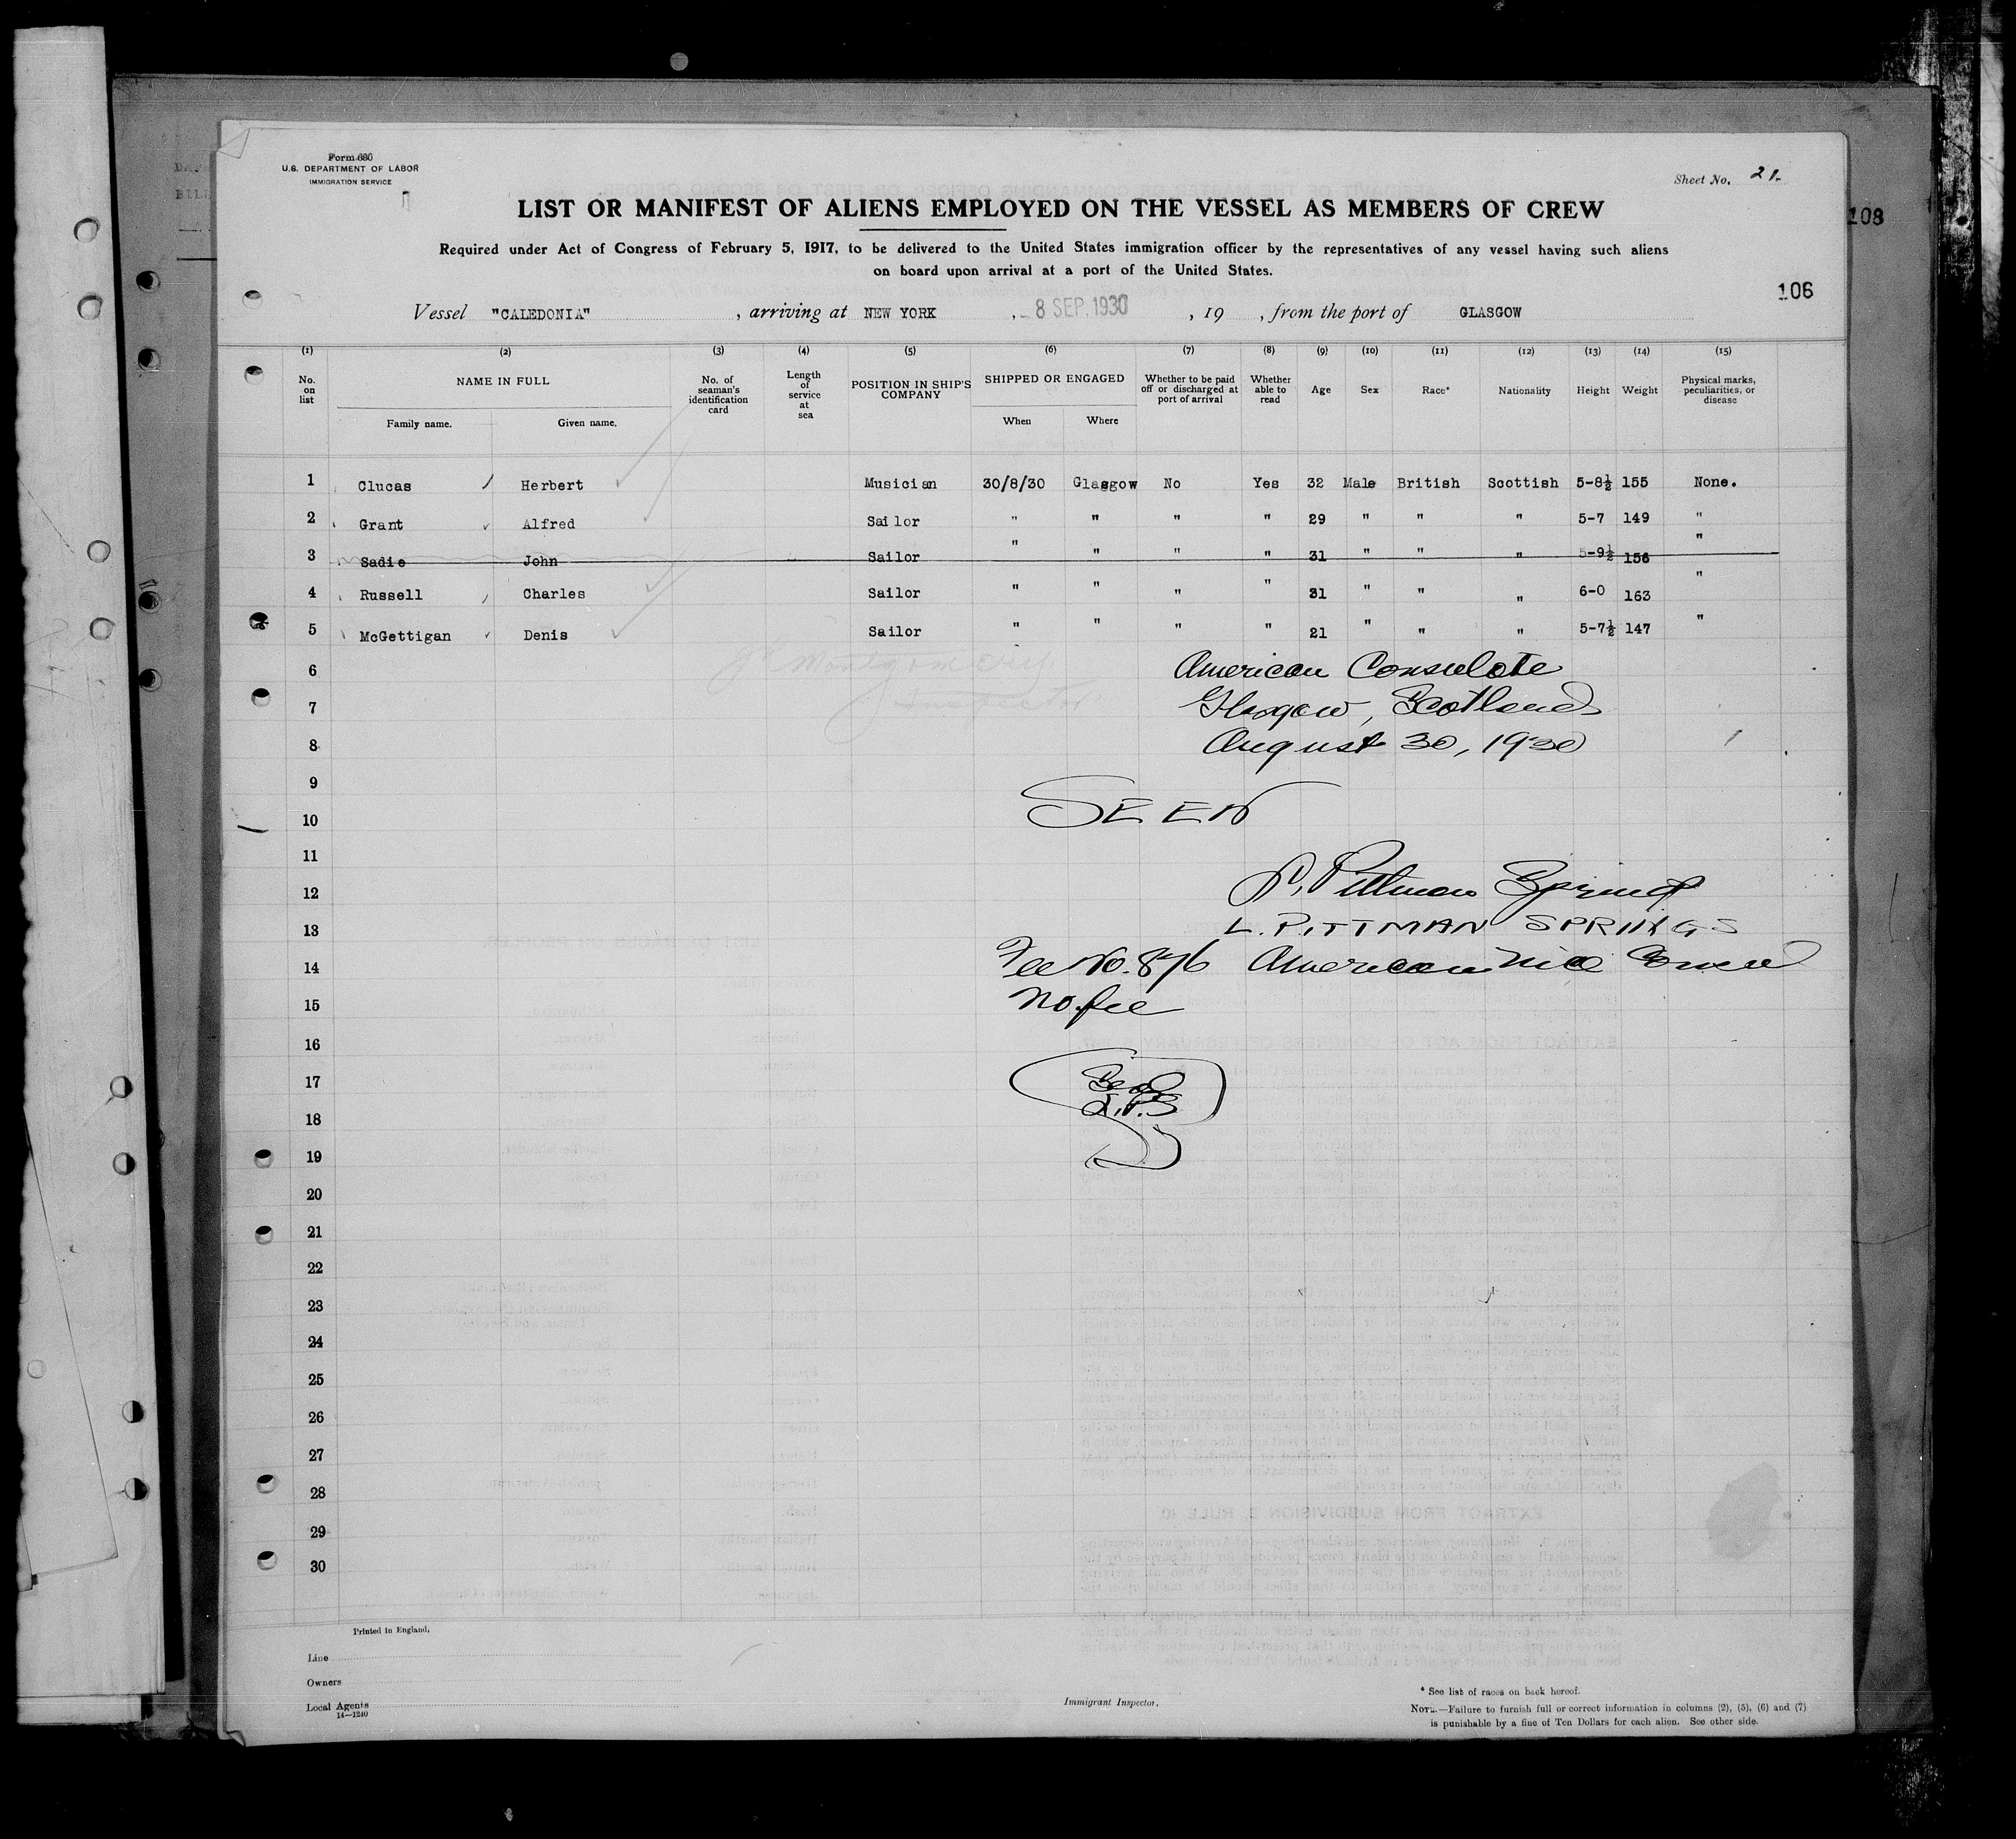 Form 680
U.S. DEPARTMENT OF LABOR
IMMIGRATION SERVICE
Sheet No. 21.
LIST OR MANIFEST OF ALIENS EMPLOYED ON THE VESSEL AS MEMBERS OF CREW
108
Required under Act of Congress of February 5, 1917, to be delivered to the United States immigration officer by the representatives of any vessel having such aliens
on board upon arrival at a port of the United States.
106
Vessel "CALEDONIA" , arriving at NEW YORK , 8 SEP. 1930 , 19 , from the port of GLASGOW
(1) (2) (3) (4) (5) (6) (7) (8) (9) (10) (11) (12) (13) (14) (15)
No. on list NAME IN FULL No. of seaman's identification card Length of service at sea POSITION IN SHIP'S COMPANY SHIPPED OR ENGAGED Whether to be paid off or discharged at port of arrival Whether able to read Age Sex Race* Nationality Height Weight Physical marks, peculiarities, or disease
Family name. Given name. When Where
1 Clucas Herbert Musician 30/8/30 Glasgow No Yes 32 Male British Scottish 5-8½ 155 None.
2 Grant Alfred Sailor " " " " 29 " " " 5-7 149 "
3 Sadie John Sailor " " " " 31 " " " 5-9½ 156 "
4 Russell Charles Sailor " " " " 31 " " " 6-0 163 "
5 McGettigan Denis Sailor " " " " 21 " " " 5-7½ 147 "
6 Montgomery American Consulate
Inspector
7 Glasgow, Scotland
8 August 30, 1930
9
10 SEEN
11
12 L. Pittman Springs
13 L. PITTMAN SPRINGS
14 Fee No. 876 American Vice Consul
15 No fee
16
17 Seal
L.P.S
18
19
20
21
22
23
24
25
26
27
28
29
30
Printed in England.
Line
Owners
Local Agents
14—1240
Immigrant Inspector.
* See list of races on back hereof.
NOTE.—Failure to furnish full or correct information in columns (2), (5), (6) and (7)
is punishable by a fine of Ten Dollars for each alien. See other side.